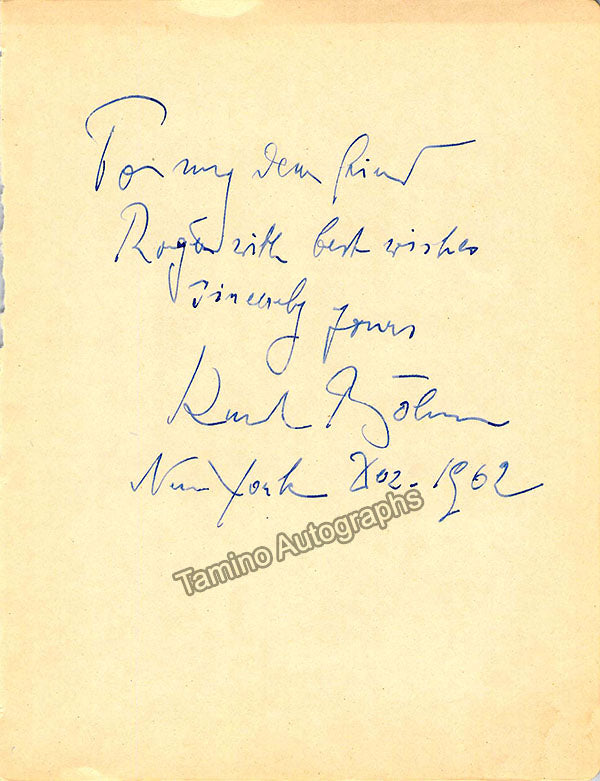 For my dear friend
Roger with best wishes
Sincerely yours
Kurt Böhme
New York Dez. 1962
Tamino Autographs